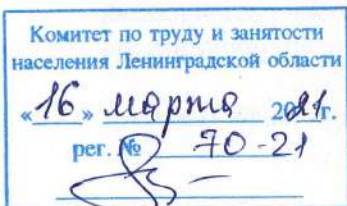 Комитет по труду и занятости
населения Ленинградской области
«16» марта 2021г.
рег. № 70-21